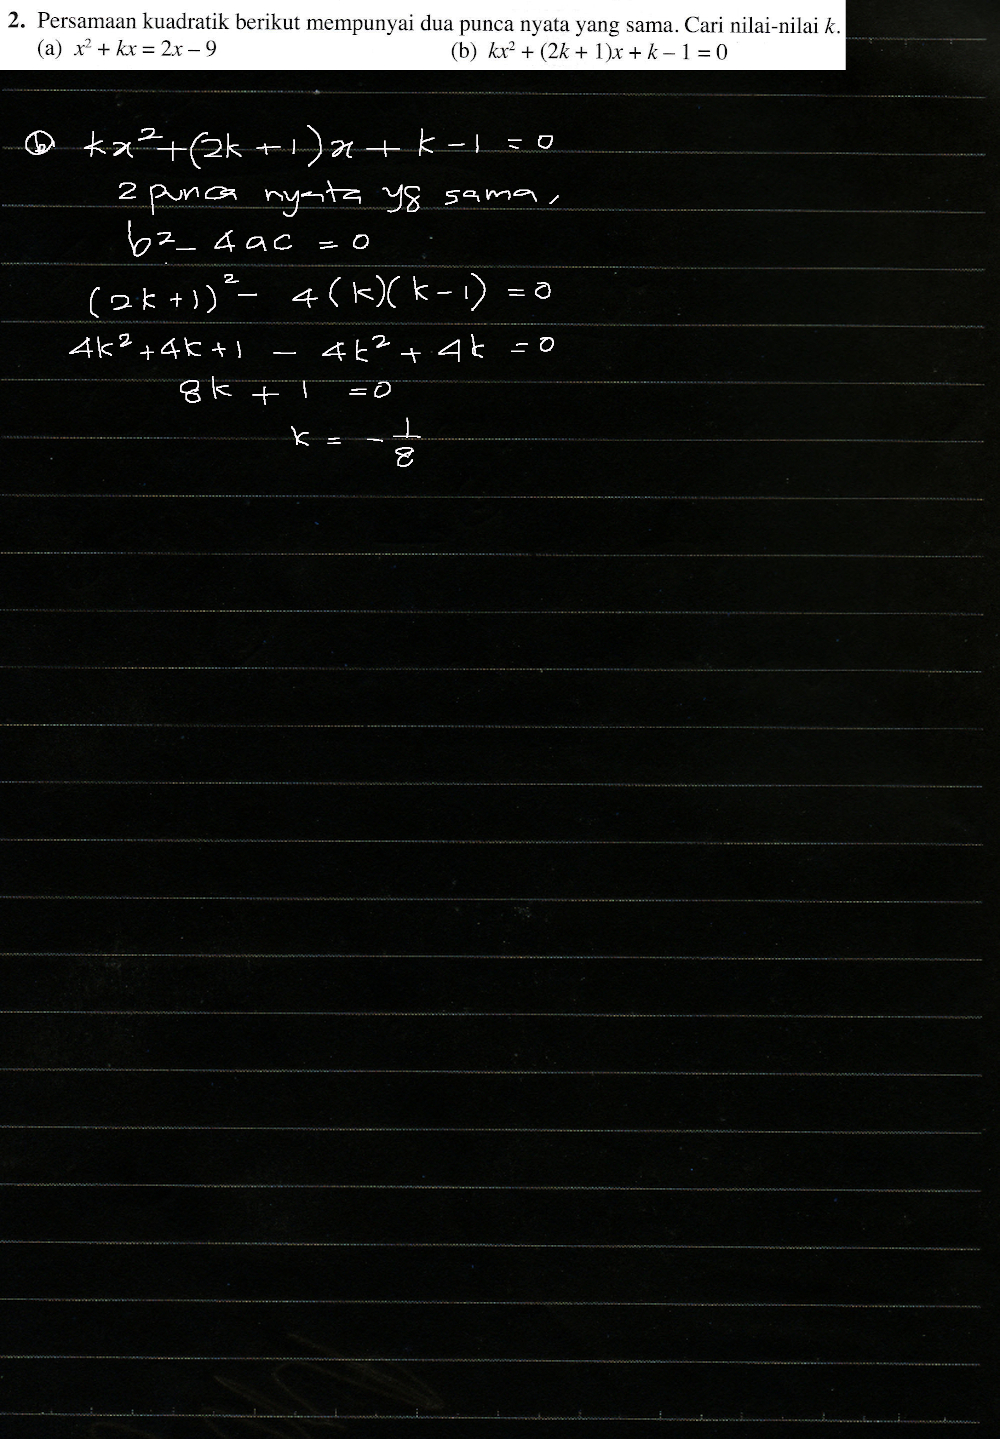 2. Persamaan kuadratik berikut mempunyai dua punca nyata yang sama. Cari nilai-nilai k.
(a) x² + kx = 2x – 9 (b) kx² + (2k + 1)x + k – 1 = 0
(b) kx² + (2k + 1)x + k - 1 = 0
2 punca nyata yg sama,
b² - 4ac = 0
(2k + 1)² - 4(k)(k - 1) = 0
4k² + 4k + 1 - 4k² + 4k = 0
8k + 1 = 0
k = - 1/8